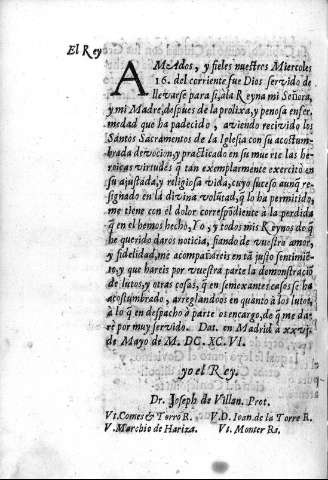 El Rey
AMAdos, y fieles nuestros Miercoles
16. del corriente fue Dios servido de
llevarse para si, ala Reyna mi Señora,
y mi Madre, despues de la prolixa, y penosa enfer
medad que ha padecido, aviendo recivido los
Santos Sacramentos de la Iglesia con su acostum-
brada devocion, y practicado en su muerte las he-
roicas virtudes q̃ tan exemplarmente exercitò en
su ajustada, y religiosa vida, cuyo suceso aunq̃ re-
signado en la divina volũtad, q̃ lo ha permitido,
me tiene con el dolor correspõdiente à la perdida
q̃ en el hemos hecho, Yo, y todos mis Reynos de q̃
he querido daros noticia, fiando de vuestro amor,
y fidelidad, me acompañareis en tã justo sentimiẽ-
to, y que hareis por vuestra parte la demonstraciõ
de lutos, y otras cosas, q̃ en semexantes casos se ha
acostumbrado, arreglandoos en quanto à los lutos,
à lo q̃ en despacho à parte os encargo, de q̃ me da-
rè por muy servido. Dat. en Madrid à xxvj.
de Mayo de M. DC. XC. VI.
yo el Rey.
Dr. Joseph de Villan. Prot.
Vt. Comes & Torrò R. V. D. Ioan. de la Torre R.
V. Marchio de Hariza. Vt. Monter Rs.